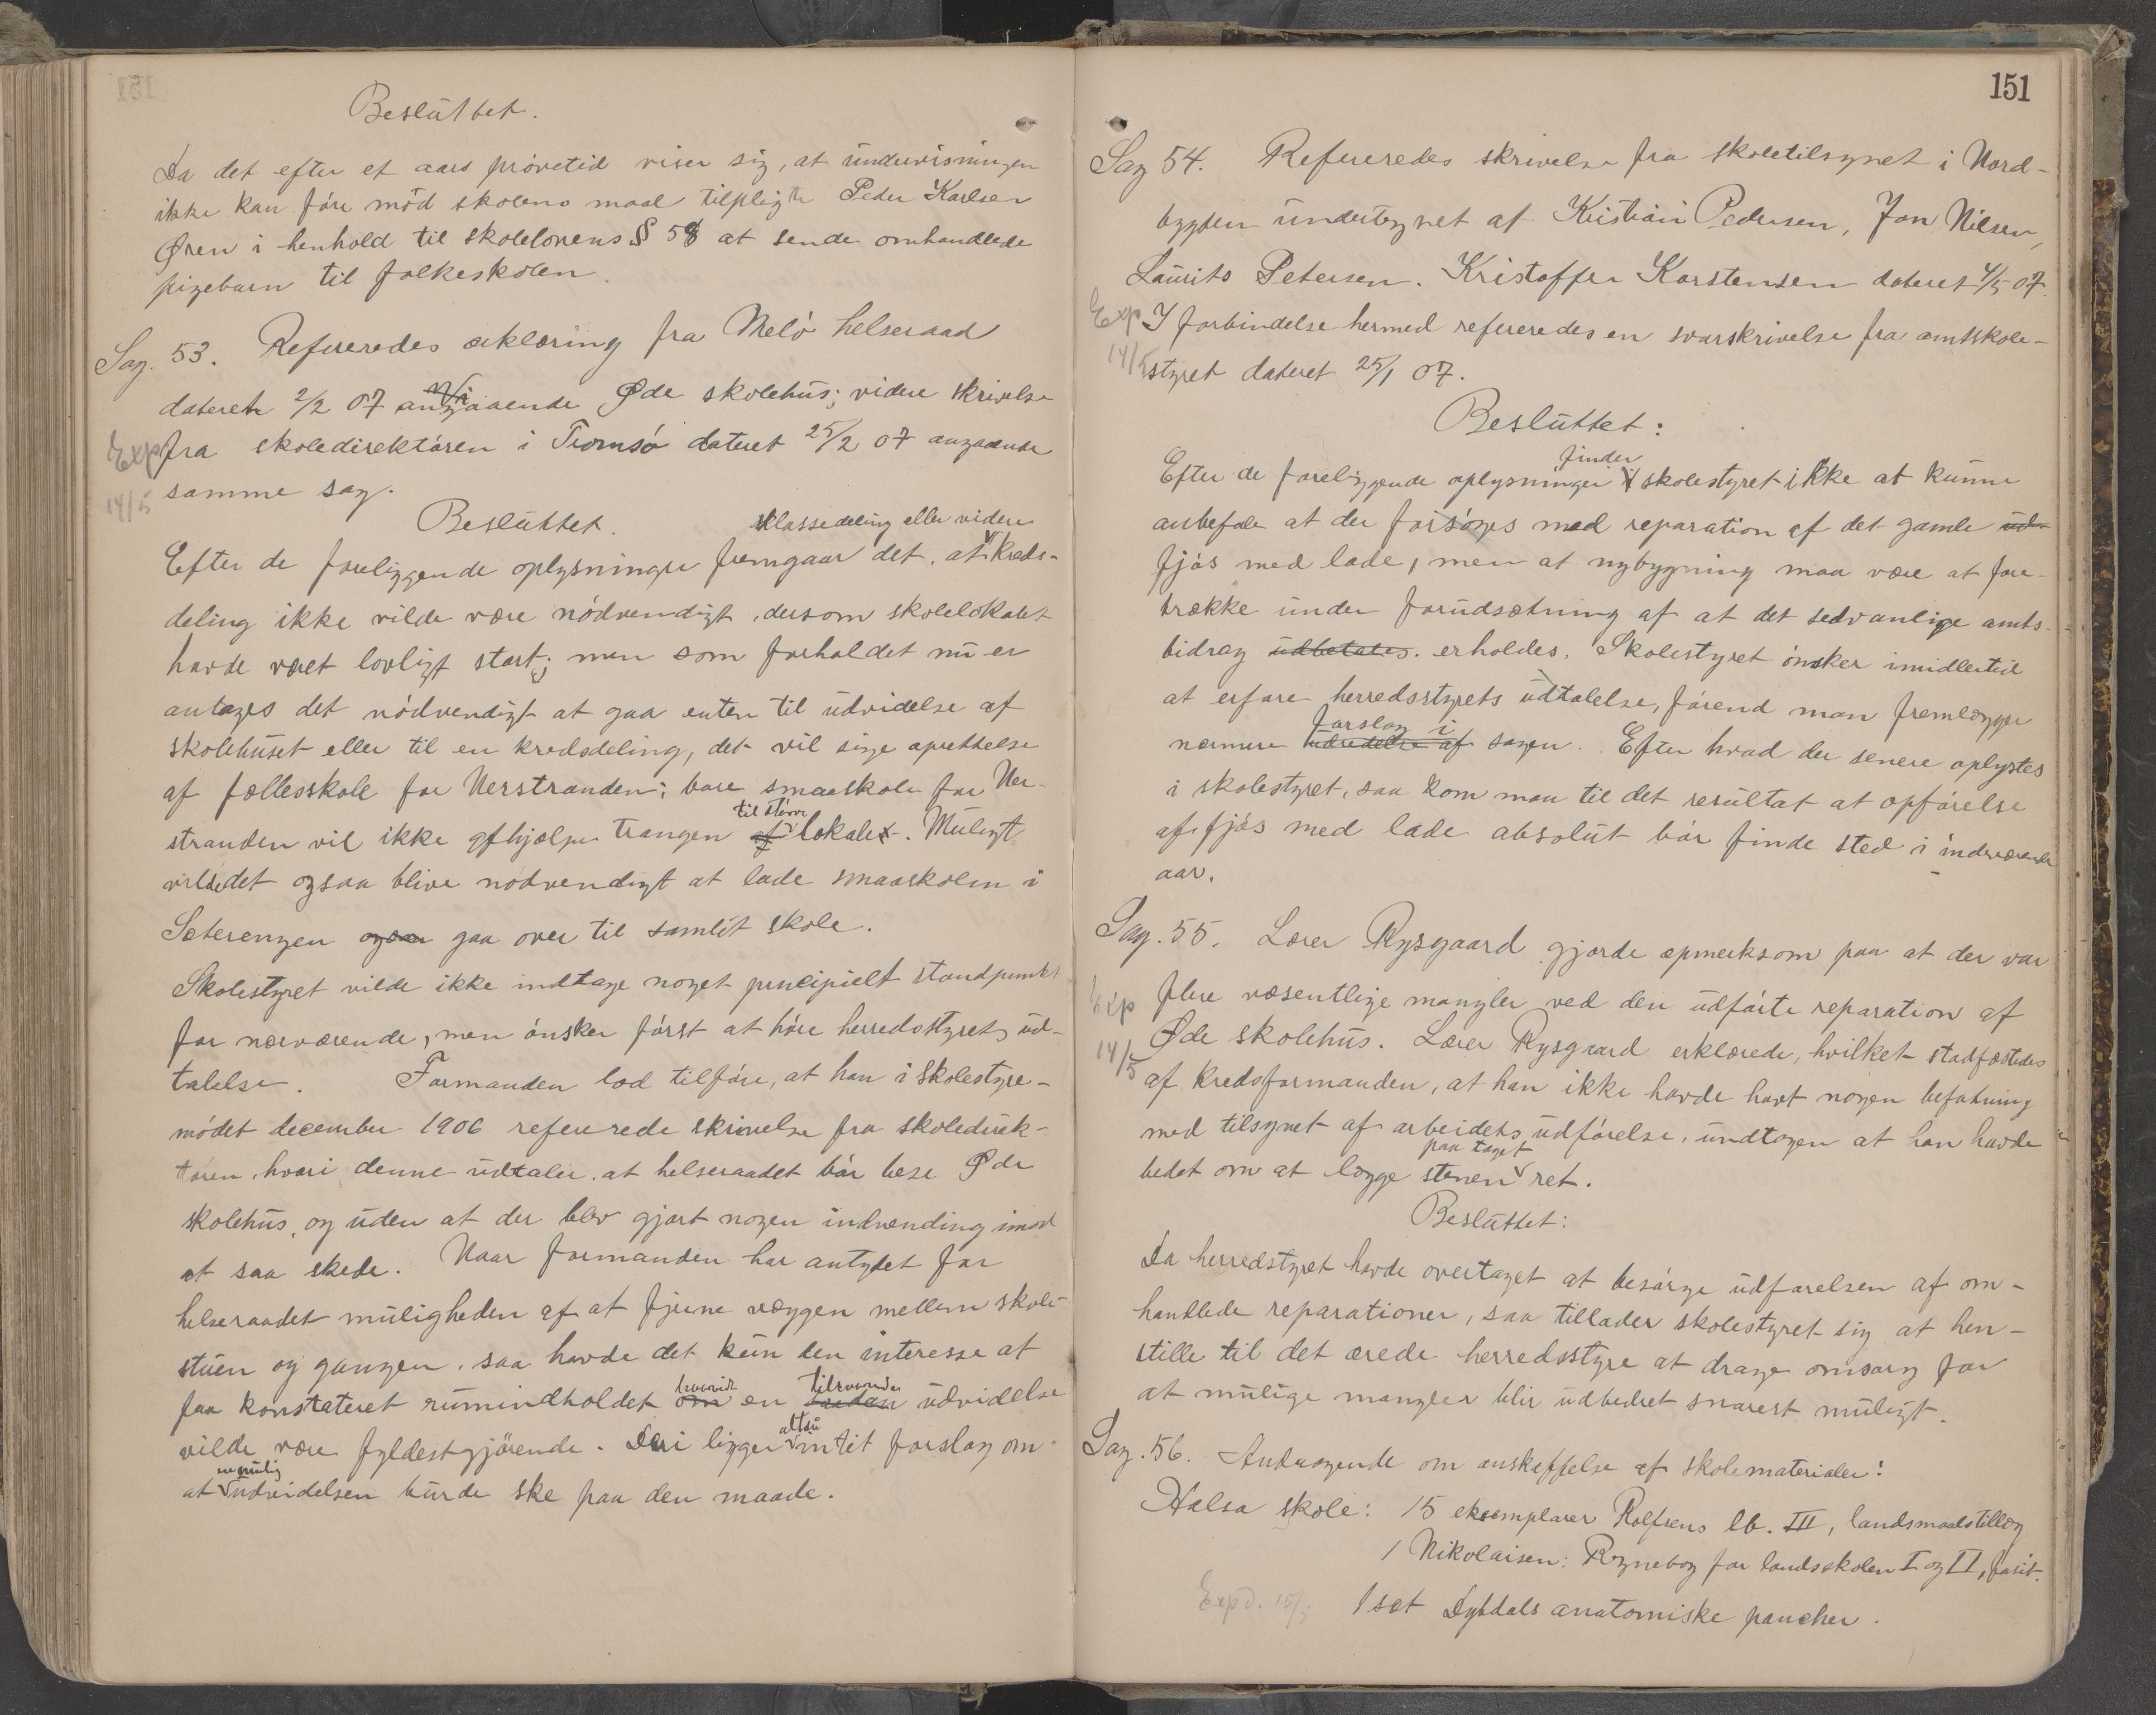 Besluttet.
Da det efter et aars prøvetid viser sig, at undervisningen
ikke kan føre mod skolens maal tilpligte Peder Karlsen
Øren i henhold til skolelovens § 58 at sende omhandlede
pigebarn til folkeskolen.
Sag. 53. Refereredes erklæring fra Melø helseraad
dateret 2/2 07 angaaende Øde skolehus; videre skrivelse
Exp fra skoledirektøren i Tromsø dateret 25/2 07 angaaende
14/5 samme sag.
Besluttet.
klassedeling eller videre
Efter de foreliggende oplysninger fremgaar det, at kreds-
deling ikke vilde være nødvendigt, dersom skolelokalet
havde været lovligt stort; men som forholdet nu er
antages det nødvendigt at gaa enten til udvidelse af
skolehuset eller til en kredsdeling, det vil sige oprettelse
af fællesskole for Nerstranden; bare smaaskole for Ner-
til større
stranden vil ikke afhjælpe trangen af lokaler. Muligt
vilde det ogsaa blive nødvendigt at lade smaaskolen i
Seterengen ogsaa gaa over til samlet skole.
Skolestyret vilde ikke indtage noget principielt standpunkt
for nærværende, men ønsker først at høre herredsstyrets ud-
talelse. Formanden lod tilføre, at han i skolestyre-
mødet december 1906 refererede skrivelse fra skoledirek-
tøren, hvori denne udtaler, at helseraadet bør bese Øde
skolehus, og uden at der blev gjort nogen indvending imod
at saa skede. Naar formanden har antydet for
helseraadet muligheden af at fjerne væggen mellem skole-
stuen og gangen, saa havde det kun den interesse at
hvorvidt tilsvarende
faa konstateret rumindholdet om en saadan udvidelse
altsaa
vilde være fyldestgjørende. Deri ligger intet forslag om
nemlig
at udvidelsen burde ske paa den maade.
151
Sag 54. Refereredes skrivelse fra skoletilsynet i Nord-
bygden undertegnet af Kristian Pedersen, Jon Nilsen,
Laurits Petersen. Kristoffer Karstensen dateret 4/5 07.
Exp I forbindelse hermed refereredes en svarskrivelse fra amtskole-
14/5 styret dateret 25/1 07.
Besluttet:
finder
Efter de foreliggende oplysninger skolestyret ikke at kunne
anbefale at der forsøges med reparation af det gamle ud-
fjøs med lade, men at nybygning maa være at fore-
trække under forudsætning af at det sedvanlige amts-
bidrag udbetales. erholdes. Skolestyret ønsker imidlertid
at erfare herredsstyrets udtalelse, førend man fremlægger
forslag i
nærmere udredelse af sagen. Efter hvad der senere oplystes
i skolestyret, saa kom man til det resultat at opførelse
af fjøs med lade absolut bør finde sted i indeværende
aar.
Sag. 55. Lærer Rysgaard gjorde opmerksom paa at der var
Exp flere væsentlige mangler ved den udførte reparation af
14/5 Øde skolehus. Lærer Rysgaard erklærede, hvilket stadfæstedes
af kredsformanden, at han ikke havde havt nogen befatning
med tilsynet af arbeidets udførelse, undtagen at han havde
paa taget
bedet om at lægge stenen ret.
Besluttet:
Da herredstyret havde overtaget at besørge udførelsen af om-
handlede reparationer, saa tillader skolestyret sig at hen-
stille til det ærede herredsstyre at drage omsorg for
at mulige mangler blir udbedret snarest muligt.
Sag. 56. Andragende om anskaffelse af skolematerialer:
Halsa skole: 15 eksemplarer Rolfsens lb. III, landsmaalstillæg
1 Nikolaisen: Regnebog for landsskolen I og II, fasit.
Expd. 15/5 1 sæt Dybdals anatomiske plancher.